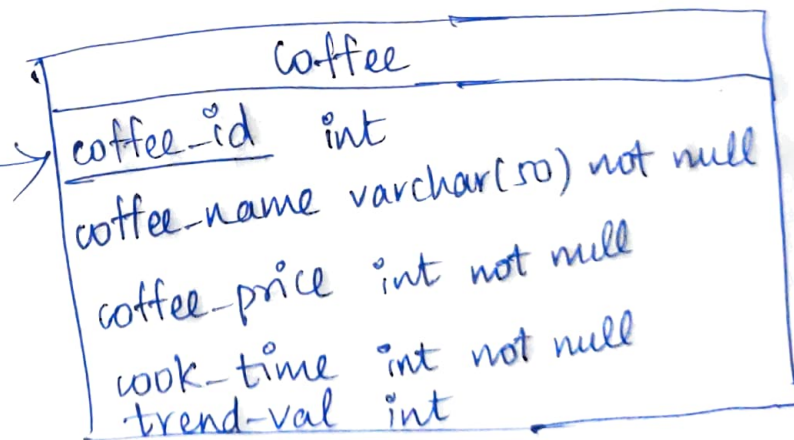 Coffee
coffee_id int
coffee_name varchar(50) not null
coffee_price int not null
cook_time int not null
trend_val int